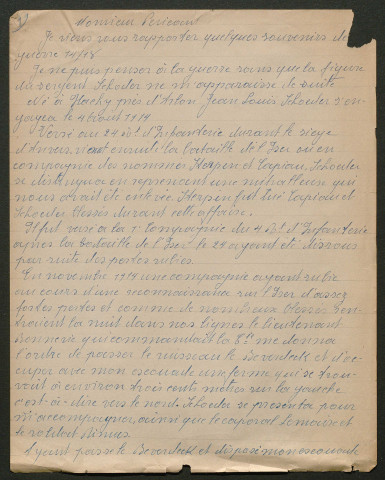 Monsieur
Je viens vous rapporter quelques souvenirs de
guerre 14/18
Je ne puis penser à la guerre sans que la figure
du sergent Schouler ne m'apparaisse de suite
Né à Hachy près d'Arlon Jean Louis Schouler s'en-
gagea le 4 août 1914
Versé au 24 de d'Infanterie durant le siège
d'Anvers vient ensuite la bataille de l'Iser où en
compagnie des nommés Herpen et Capiau, Schouler
se distingua en reprenant une mitrailleuse qui
nous avait été enlevée Herpen fut tué Capiau et
Schouler blessés durant cette affaire.
Il fut versé à la 1e compagnie du 4 de d'Infanterie
après la bataille de l'Iser le 24 ayant été dissous
par suite des pertes subies.
En novembre 1914 une compagnie ayant subie
au cours d'une reconnaissance sur l'Iser d'assez
fortes pertes et comme de nombreux blessés ren-
traient la nuit dans nos lignes le lieutenant
qui commandait la 8e me donna
l'ordre de passer le ruisseau le Beverdeek et d'oc-
cuper avec mon escouade une ferme qui se trou-
vait à environ trois cent mètres sur la gauche
c'est-à-dire vers le nord. Schouler se présenta pour
m'accompagner, ainsi que le caporal Lemaire et
le soldat
Ayant passé le Beverdeek et disposé mon escouade